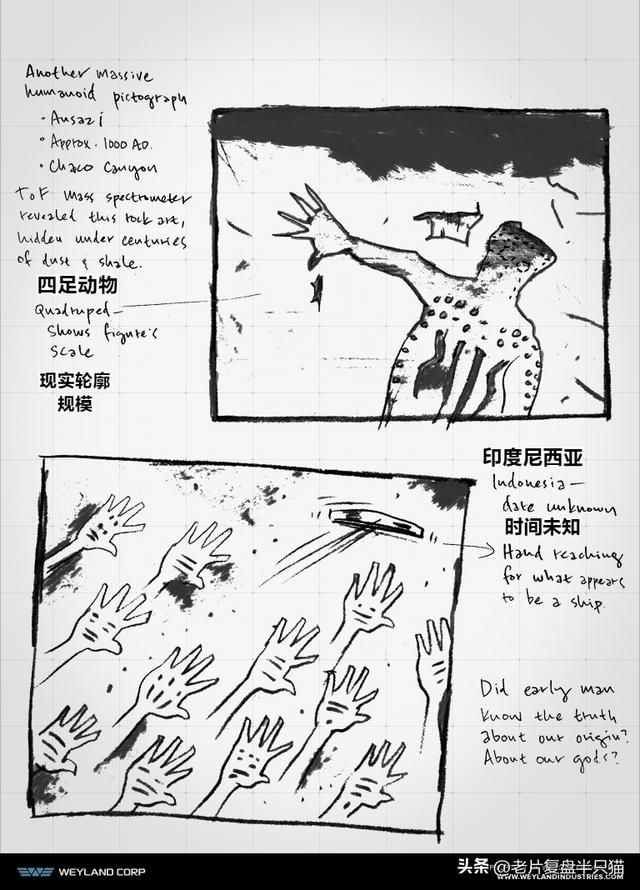 Another massive
humanoid pictograph
• Ansazi
• Approx. 1000 AD.
• Chaco Canyon
ToF mass spectrometer
revealed this rock art,
hidden under centuries
of dust & shale.
四足动物
Quadruped—
shows figure's
scale
现实轮廓
规模
印度尼西亚
Indonesia—
date unknown
时间未知
Hand reaching
for what appears
to be a ship.
Did early man
know the truth
about our origin?
About our gods?
WEYLAND CORP
头条 @老片复盘半只猫
WWW.WEYLANDINDUSTRIES.COM